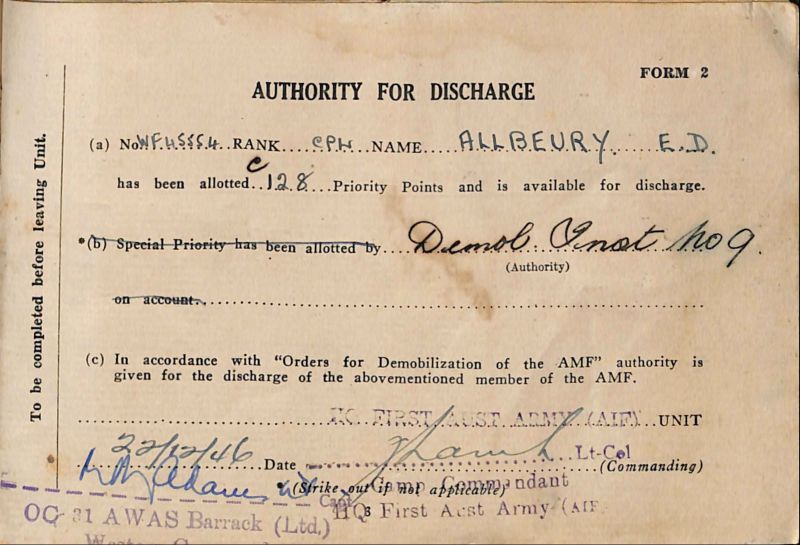 FORM 2
AUTHORITY FOR DISCHARGE
(a) No WF45554 RANK CPL NAME ALLBEURY E.D.
has been allotted C 128 Priority Points and is available for discharge.
*(b) Special Priority has been allotted by Demob. Inst No 9.
(Authority)
on account.
(c) In accordance with "Orders for Demobilization of the AMF" authority is
given for the discharge of the abovementioned member of the AMF.
HQ FIRST AUST ARMY (AIF) UNIT
22/12/46 Date Lt-Col (Commanding)
*(Strike out if not applicable) Camp Commandant
Capt HQ First Aust Army (AIF
3
OC 31 AWAS Barrack (Ltd.)
To be completed before leaving Unit.